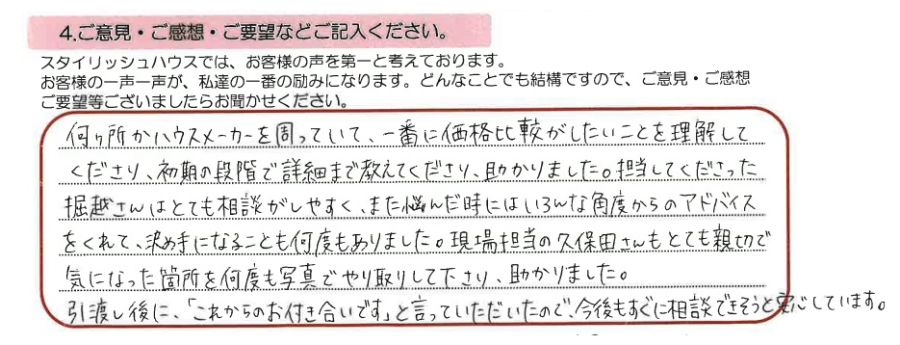 4.ご意見・ご感想・ご要望などご記入ください。
スタイリッシュハウスでは、お客様の声を第一と考えております。
お客様の一声一声が、私達の一番の励みになります。どんなことでも結構ですので、ご意見・ご感想
ご要望等ございましたらお聞かせください。
何ヶ所かハウスメーカーを周っていて、一番に価格比較がしたいことを理解して
くださり、初期の段階で詳細まで教えてくださり、助かりました。担当してくださった
堀越さんはとても相談がしやすく、また悩んだ時にはいろんな角度からのアドバイス
をくれて、決め手になることも何度もありました。現場担当の久保田さんもとても親切で
気になった箇所を何度も写真でやり取りして下さり、助かりました。
引渡し後に、「これからのお付き合いです」と言っていただいたので、今後もすぐに相談できそうと安心しています。